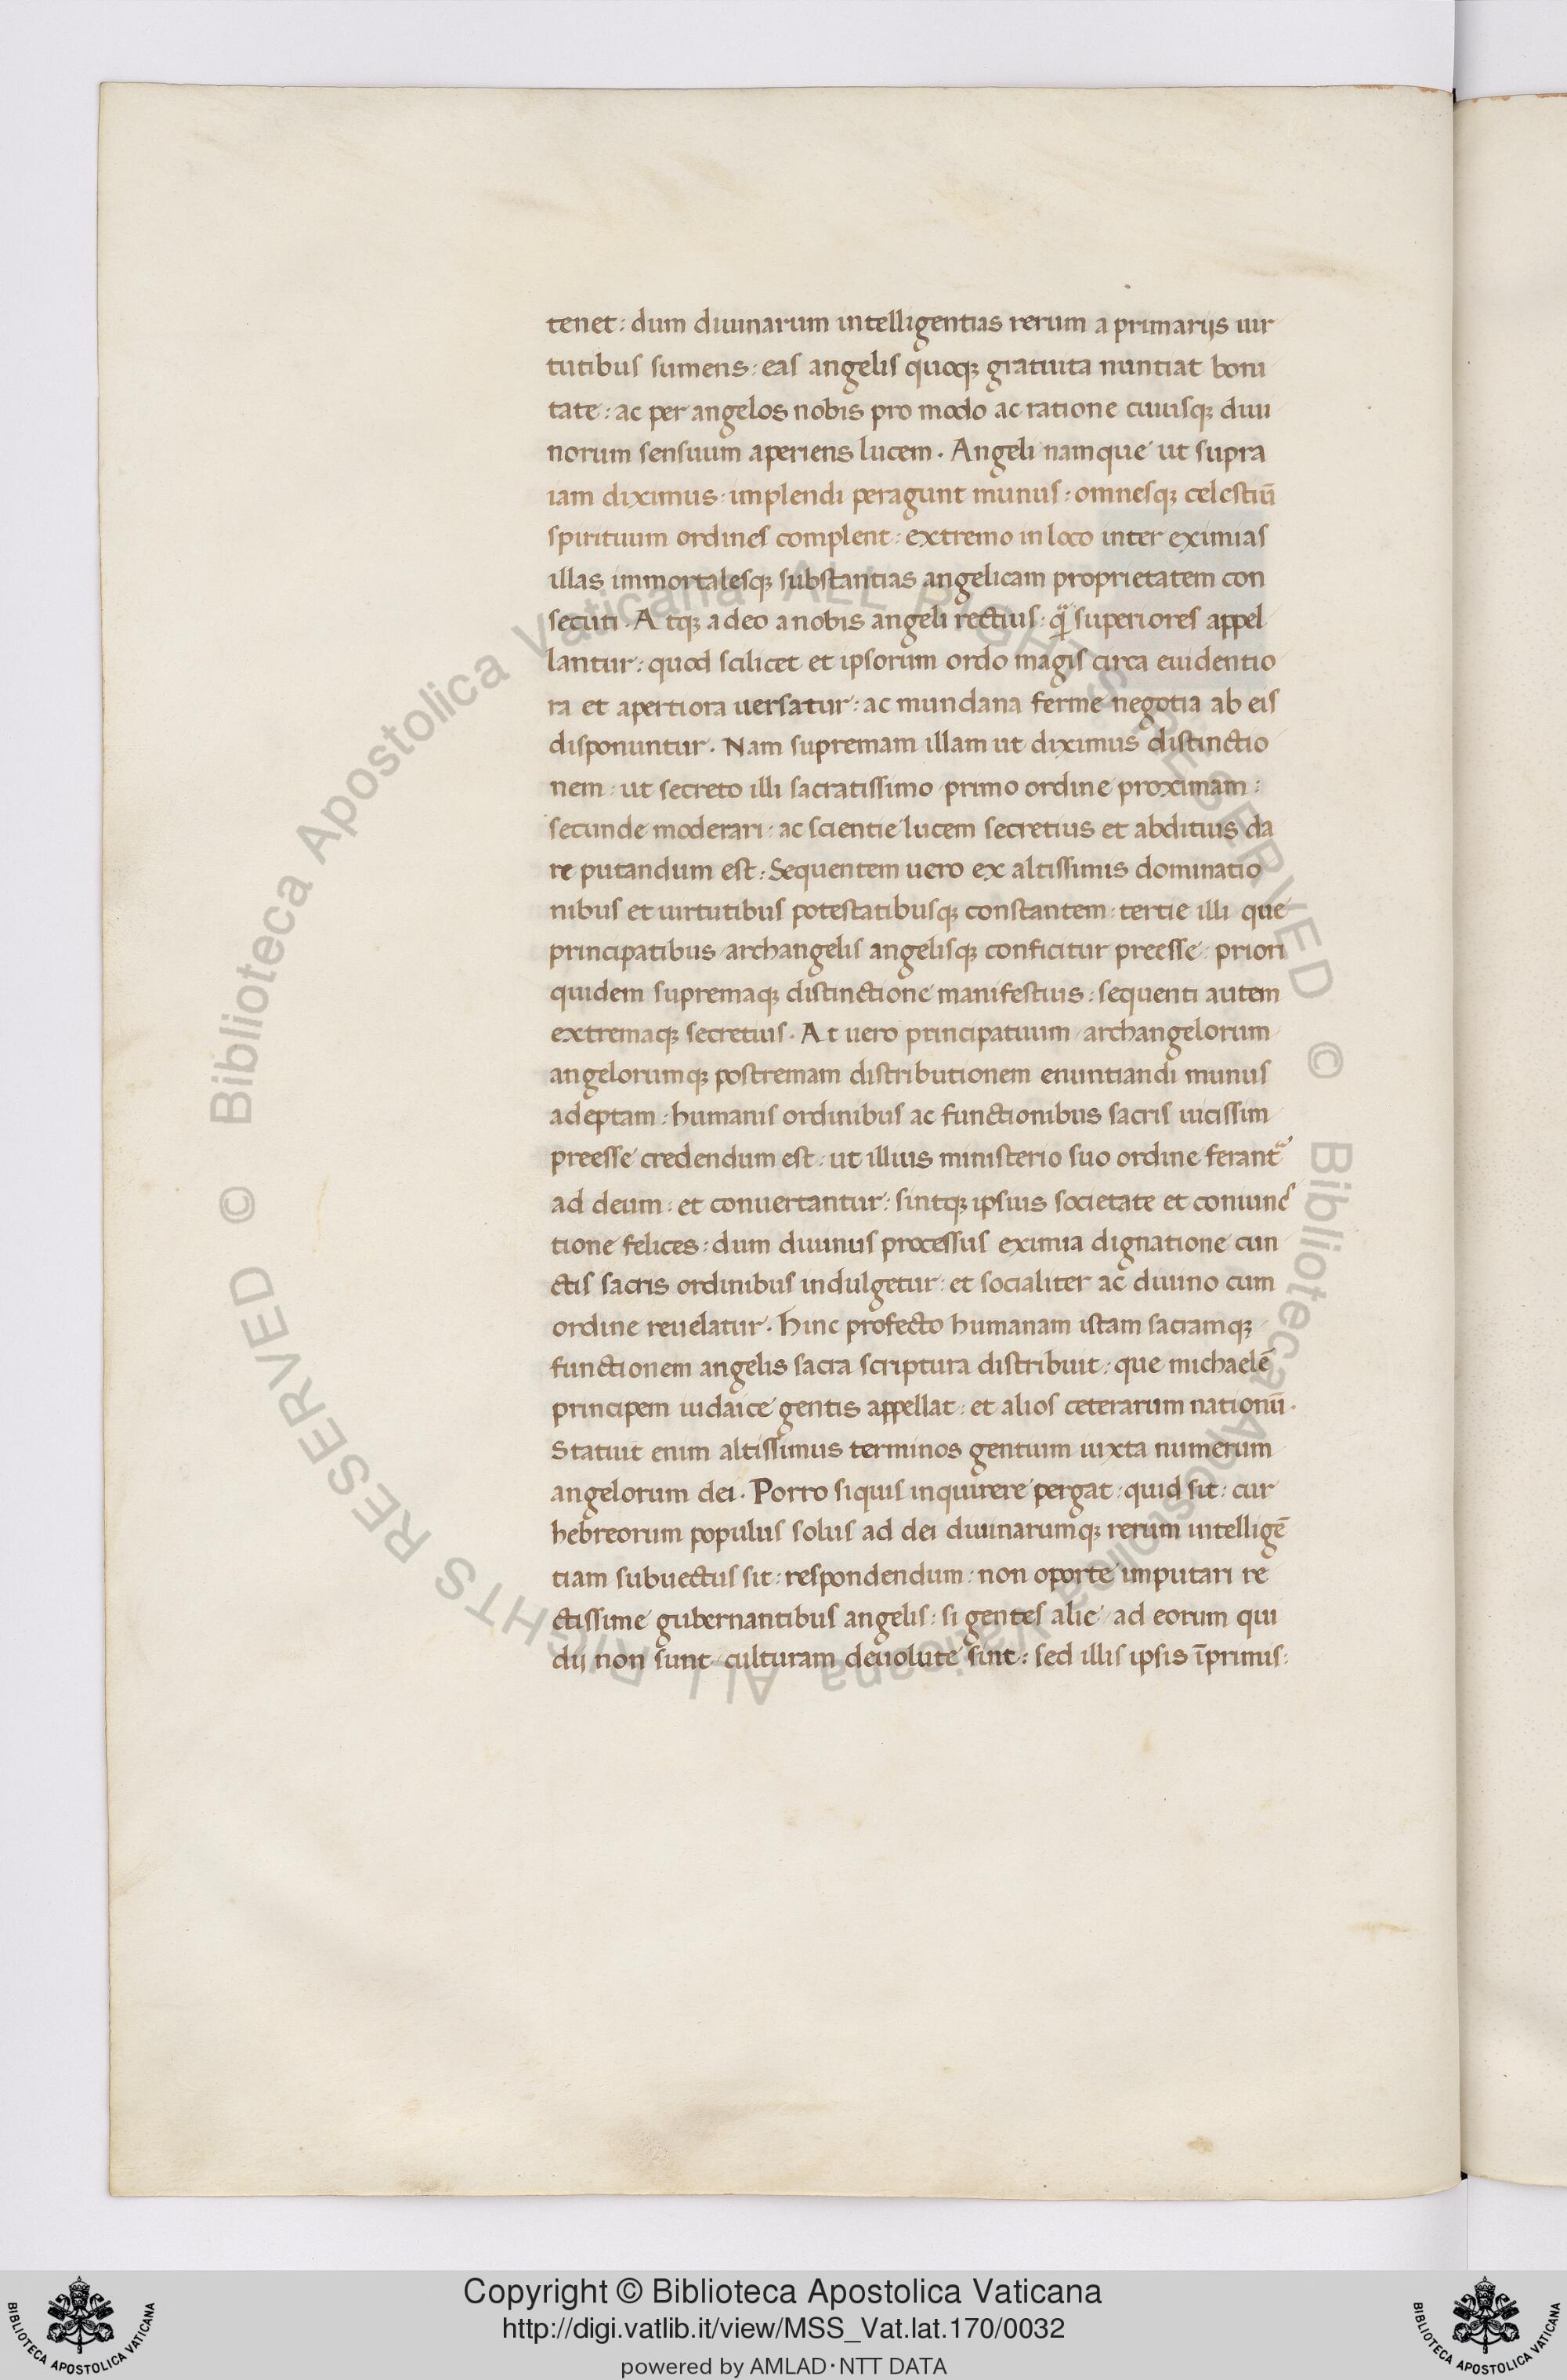 tenet: dum diuinarum intelligentias rerum a primarijs uir
tutibus sumens: eas angelis quoqꝫ gratuita nuntiat boni
tate: ac per angelos nobis pro modo ac ratione cuiusqꝫ diui
norum sensuum aperiens lucem. Angeli namque ut supra
iam diximus: implendi peragunt munus: omnesqꝫ celestiū
spirituum ordines complent: extremo in loco inter eximias
illas immortalesqꝫ substantias angelicam proprietatem con
secuti. Atqꝫ adeo a nobis angeli rectius: q̃ superiores appel
lantur: quod scilicet et ipsorum ordo magis circa euidentio
ra et apertiora uersatur: ac mundana ferme negotia ab eis
disponuntur. Nam supremam illam ut diximus distinctio
nem: ut secreto illi sacratissimo primo ordine proximam:
secunde moderari: ac scientie lucem secretius et abditius da
re putandum est: Sequentem uero ex altissimis dominatio
nibus et uirtutibus potestatibusqꝫ constantem: tertie illi que
principatibus archangelis angelisqꝫ conficitur preesse: priori
quidem supremaqꝫ distinctione manifestius: sequenti autem
extremaqꝫ secretius. At uero principatuum archangelorum
angelorumqꝫ postremam distributionem enuntiandi munus
adeptam: humanis ordinibus ac functionibus sacris uicissim
preesse credendum est: ut illius ministerio suo ordine ferant᷑
ad deum: et conuertantur: sintqꝫ ipsius societate et coniunc
tione felices: dum diuinus processus eximia dignatione cun
ctis sacris ordinibus indulgetur: et socialiter ac diuino cum
ordine reuelatur. Hinc profecto humanam istam sacramqꝫ
functionem angelis sacra scriptura distribuit: que michaelē
principem iudaice gentis appellat: et alios ceterarum nationū.
Statuit enim altissimus terminos gentium iuxta numerum
angelorum dei. Porro siquis inquirere pergat: quid sit: cur
hebreorum populus solus ad dei diuinarumqꝫ rerum intelligē
tiam subuectus sit: respondendum: non oporte imputari re
ctissime gubernantibus angelis: si gentes alie ad eorum qui
dij non sunt culturam deuolute sint: sed illis ipsis īprimis:
© Biblioteca Apostolica Vaticana ALL RIGHTS RESERVED © Biblioteca Apostolica Vaticana ALL RIGHTS RESERVED
Copyright © Biblioteca Apostolica Vaticana
http://digi.vatlib.it/view/MSS_Vat.lat.170/0032
powered by AMLAD·NTT DATA
BIBLIOTECA APOSTOLICA VATICANA
BIBLIOTECA APOSTOLICA VATICANA